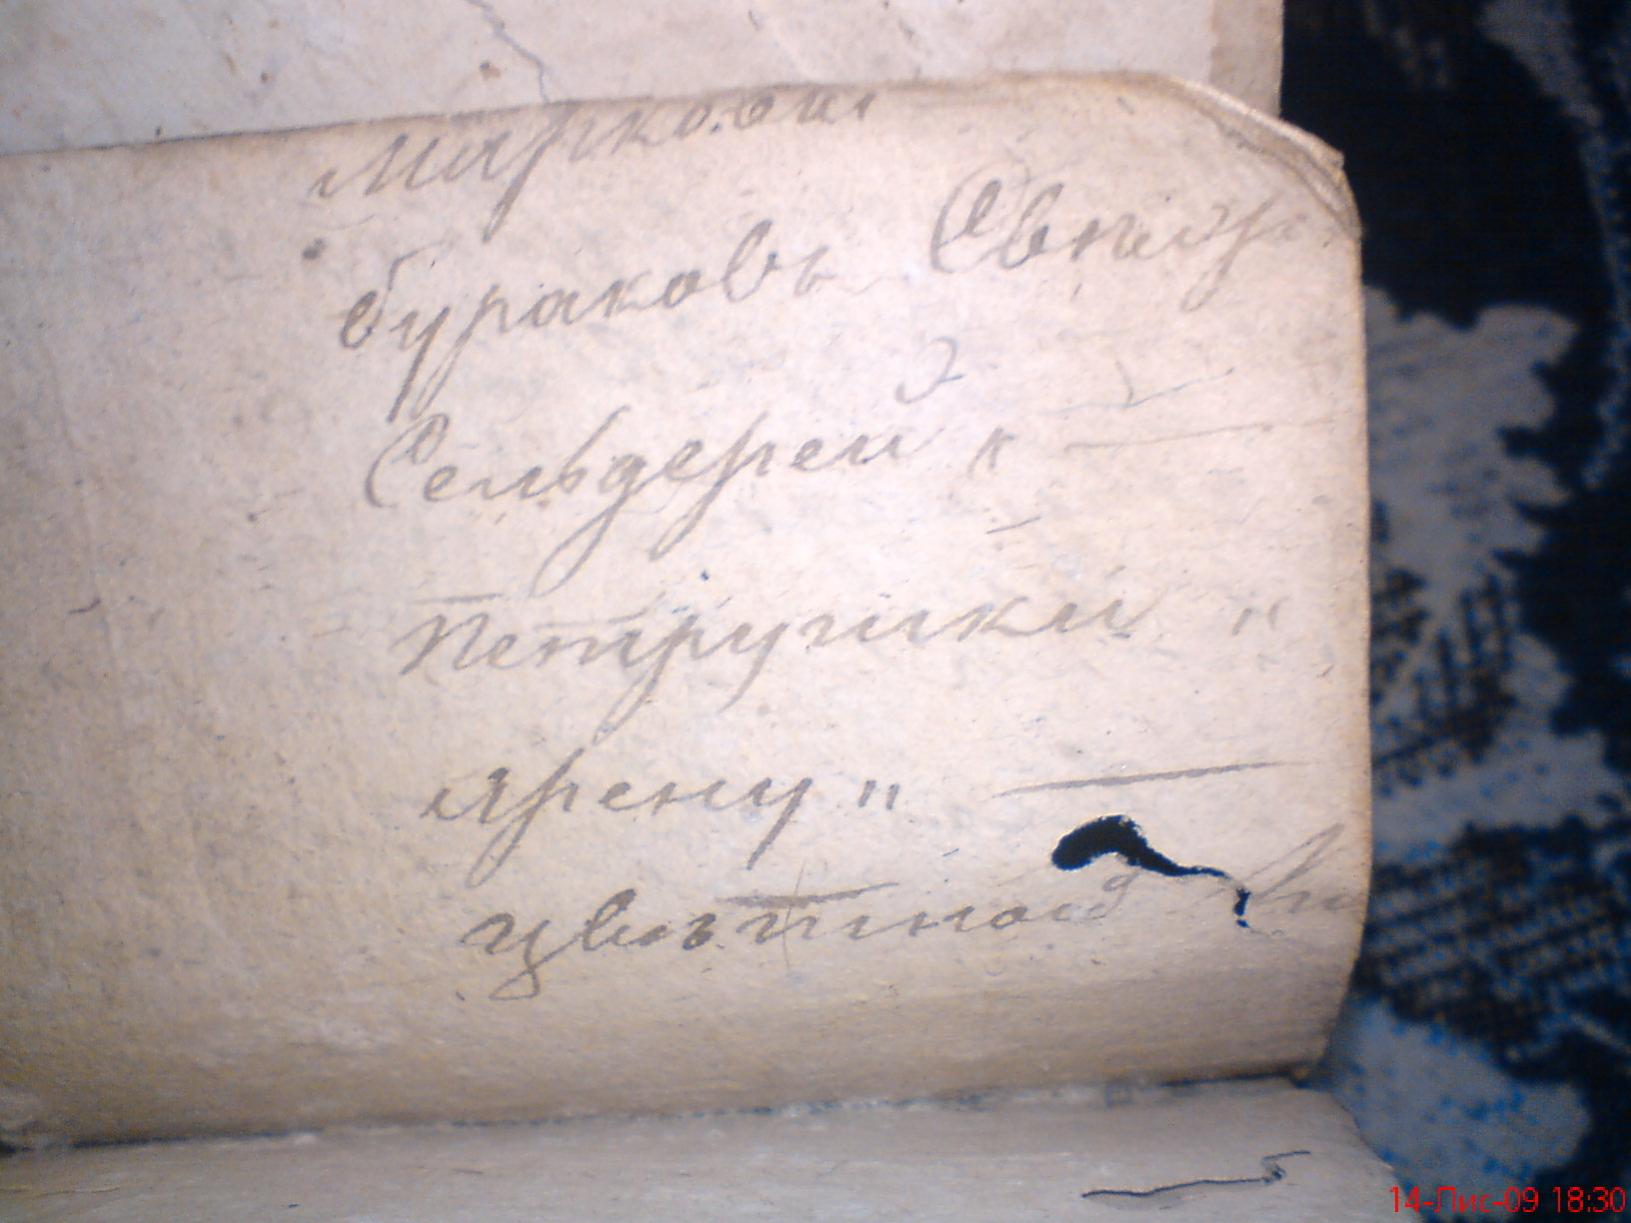 Маркови
бураковъ
Сельдерей "
Петрушки "
ярену "
цвѣтной
14-Лис-09 18:30